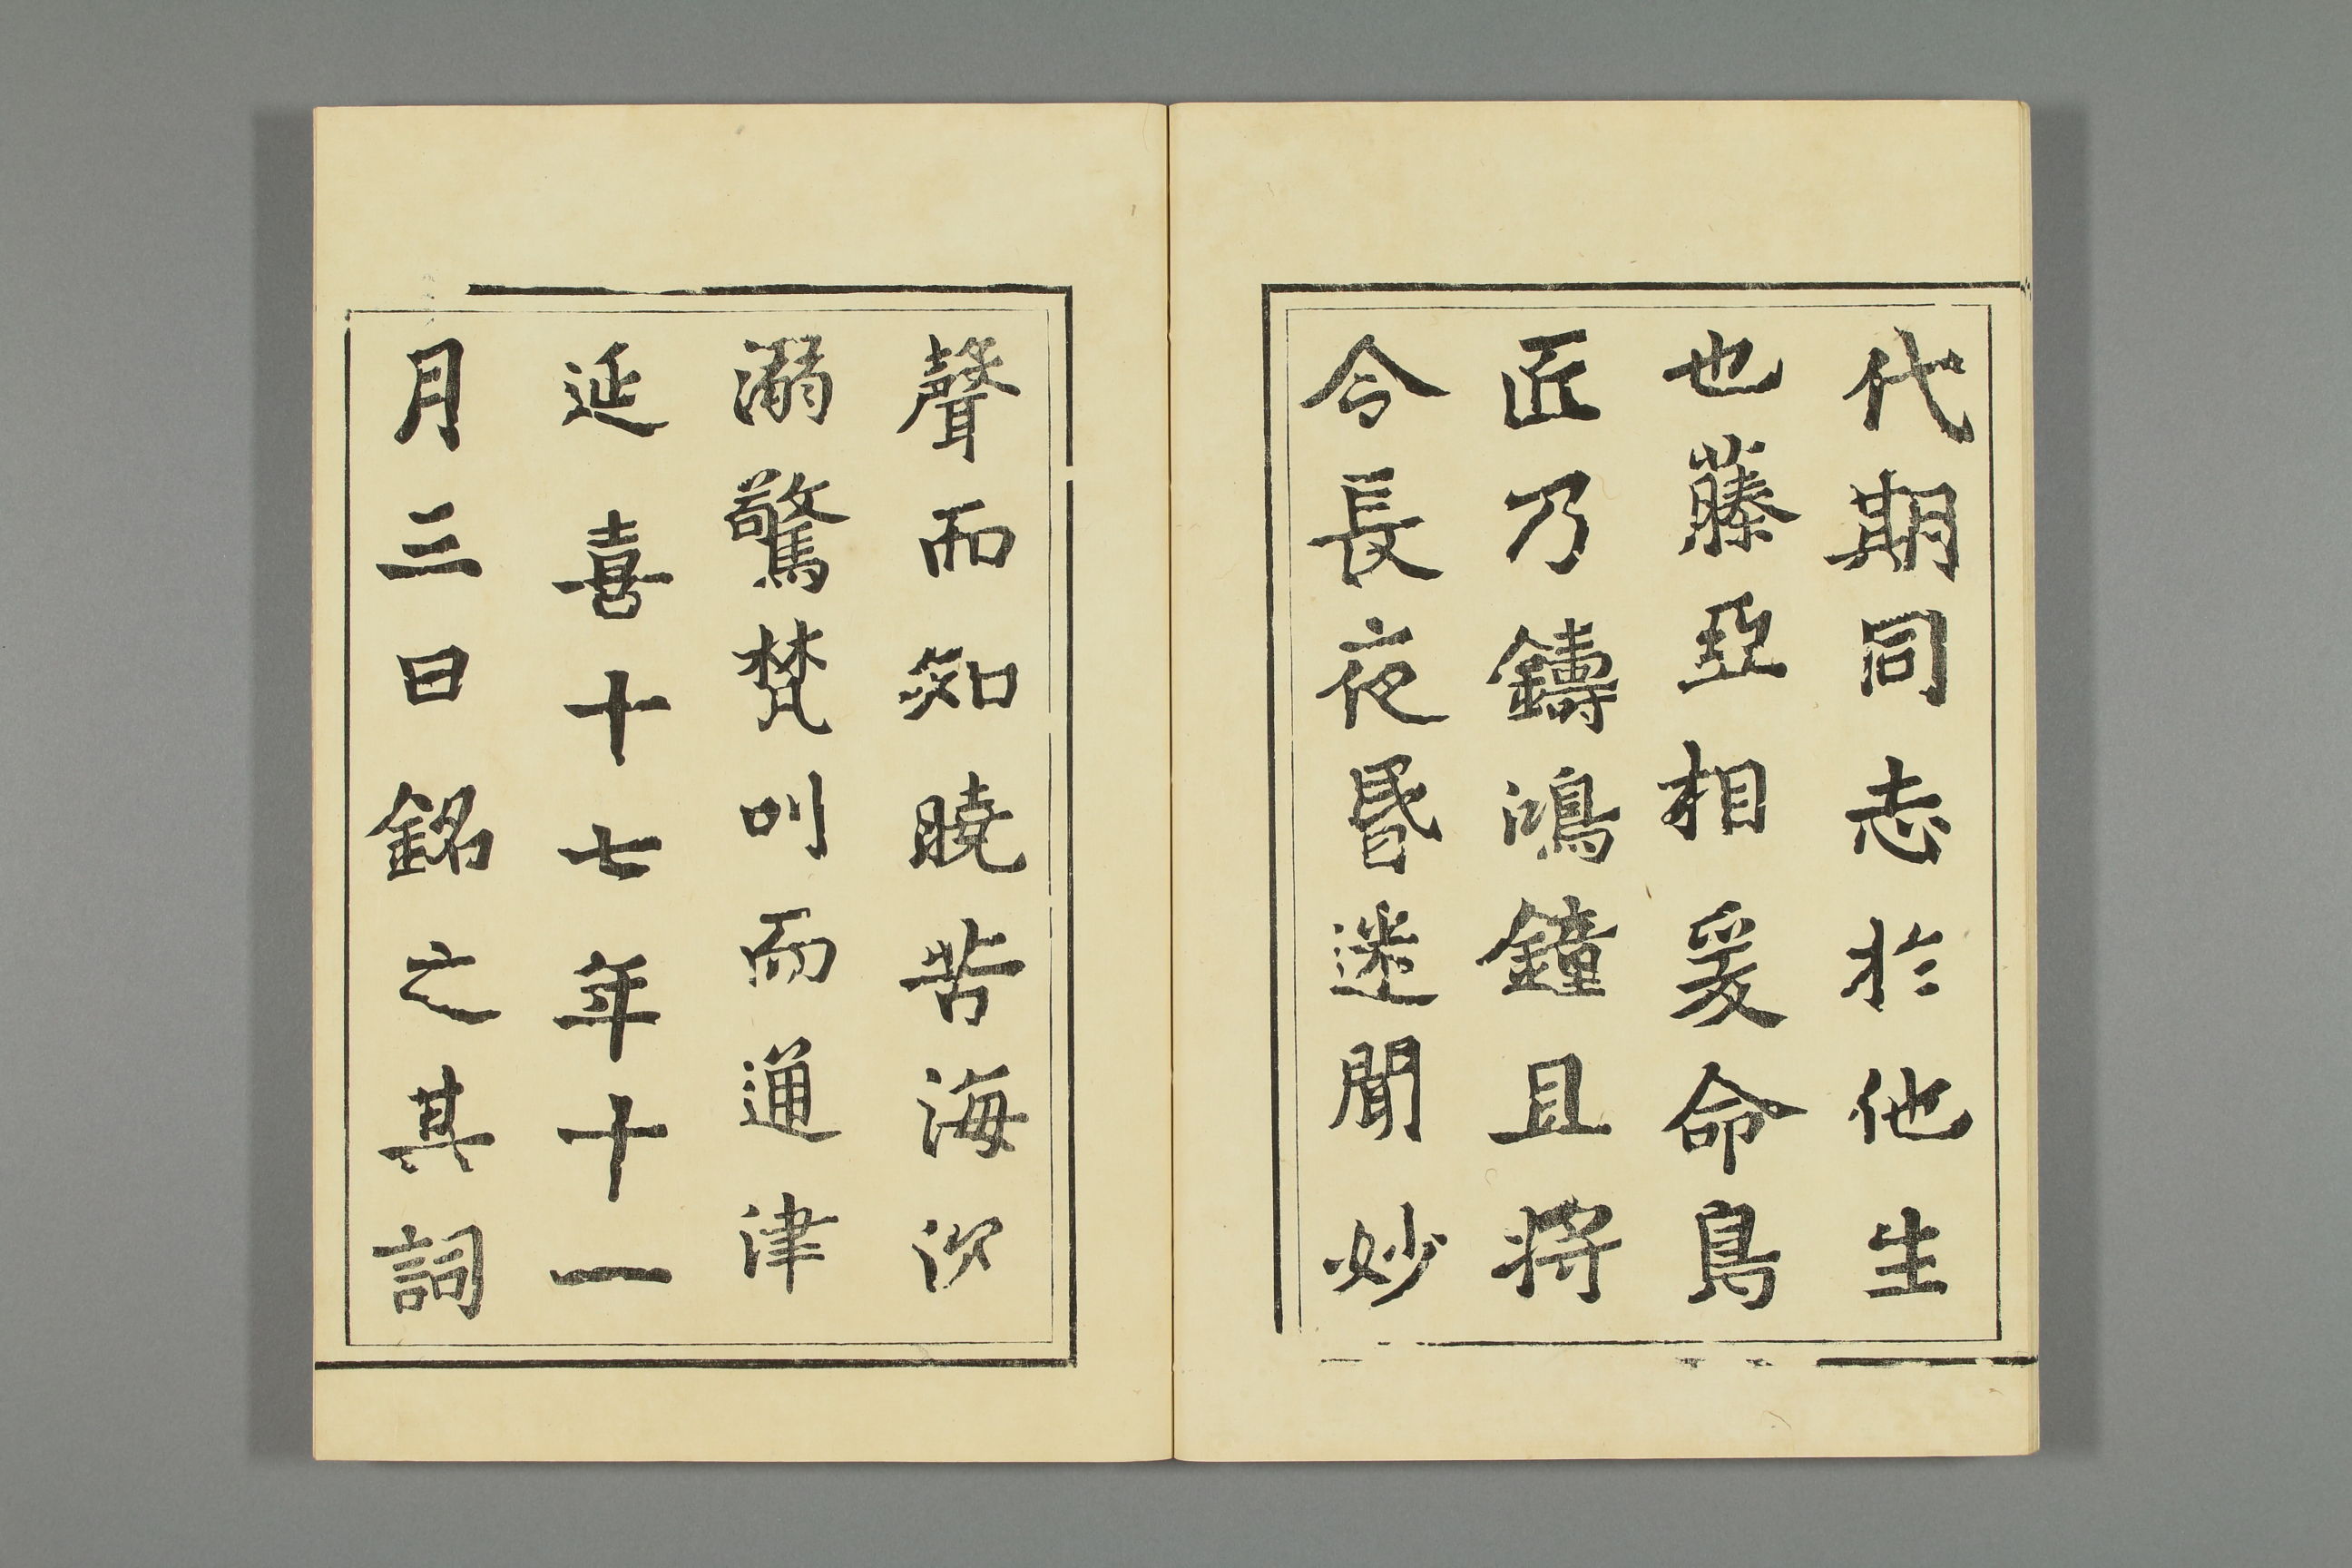 代期同志於他生
也藤亞相爰命鳥
匠乃鑄鴻鐘且將
令長夜昬迷聞妙
聲而知曉苦海沉
溺驚梵叫而通津
延喜十七年十一
月三日銘之其詞